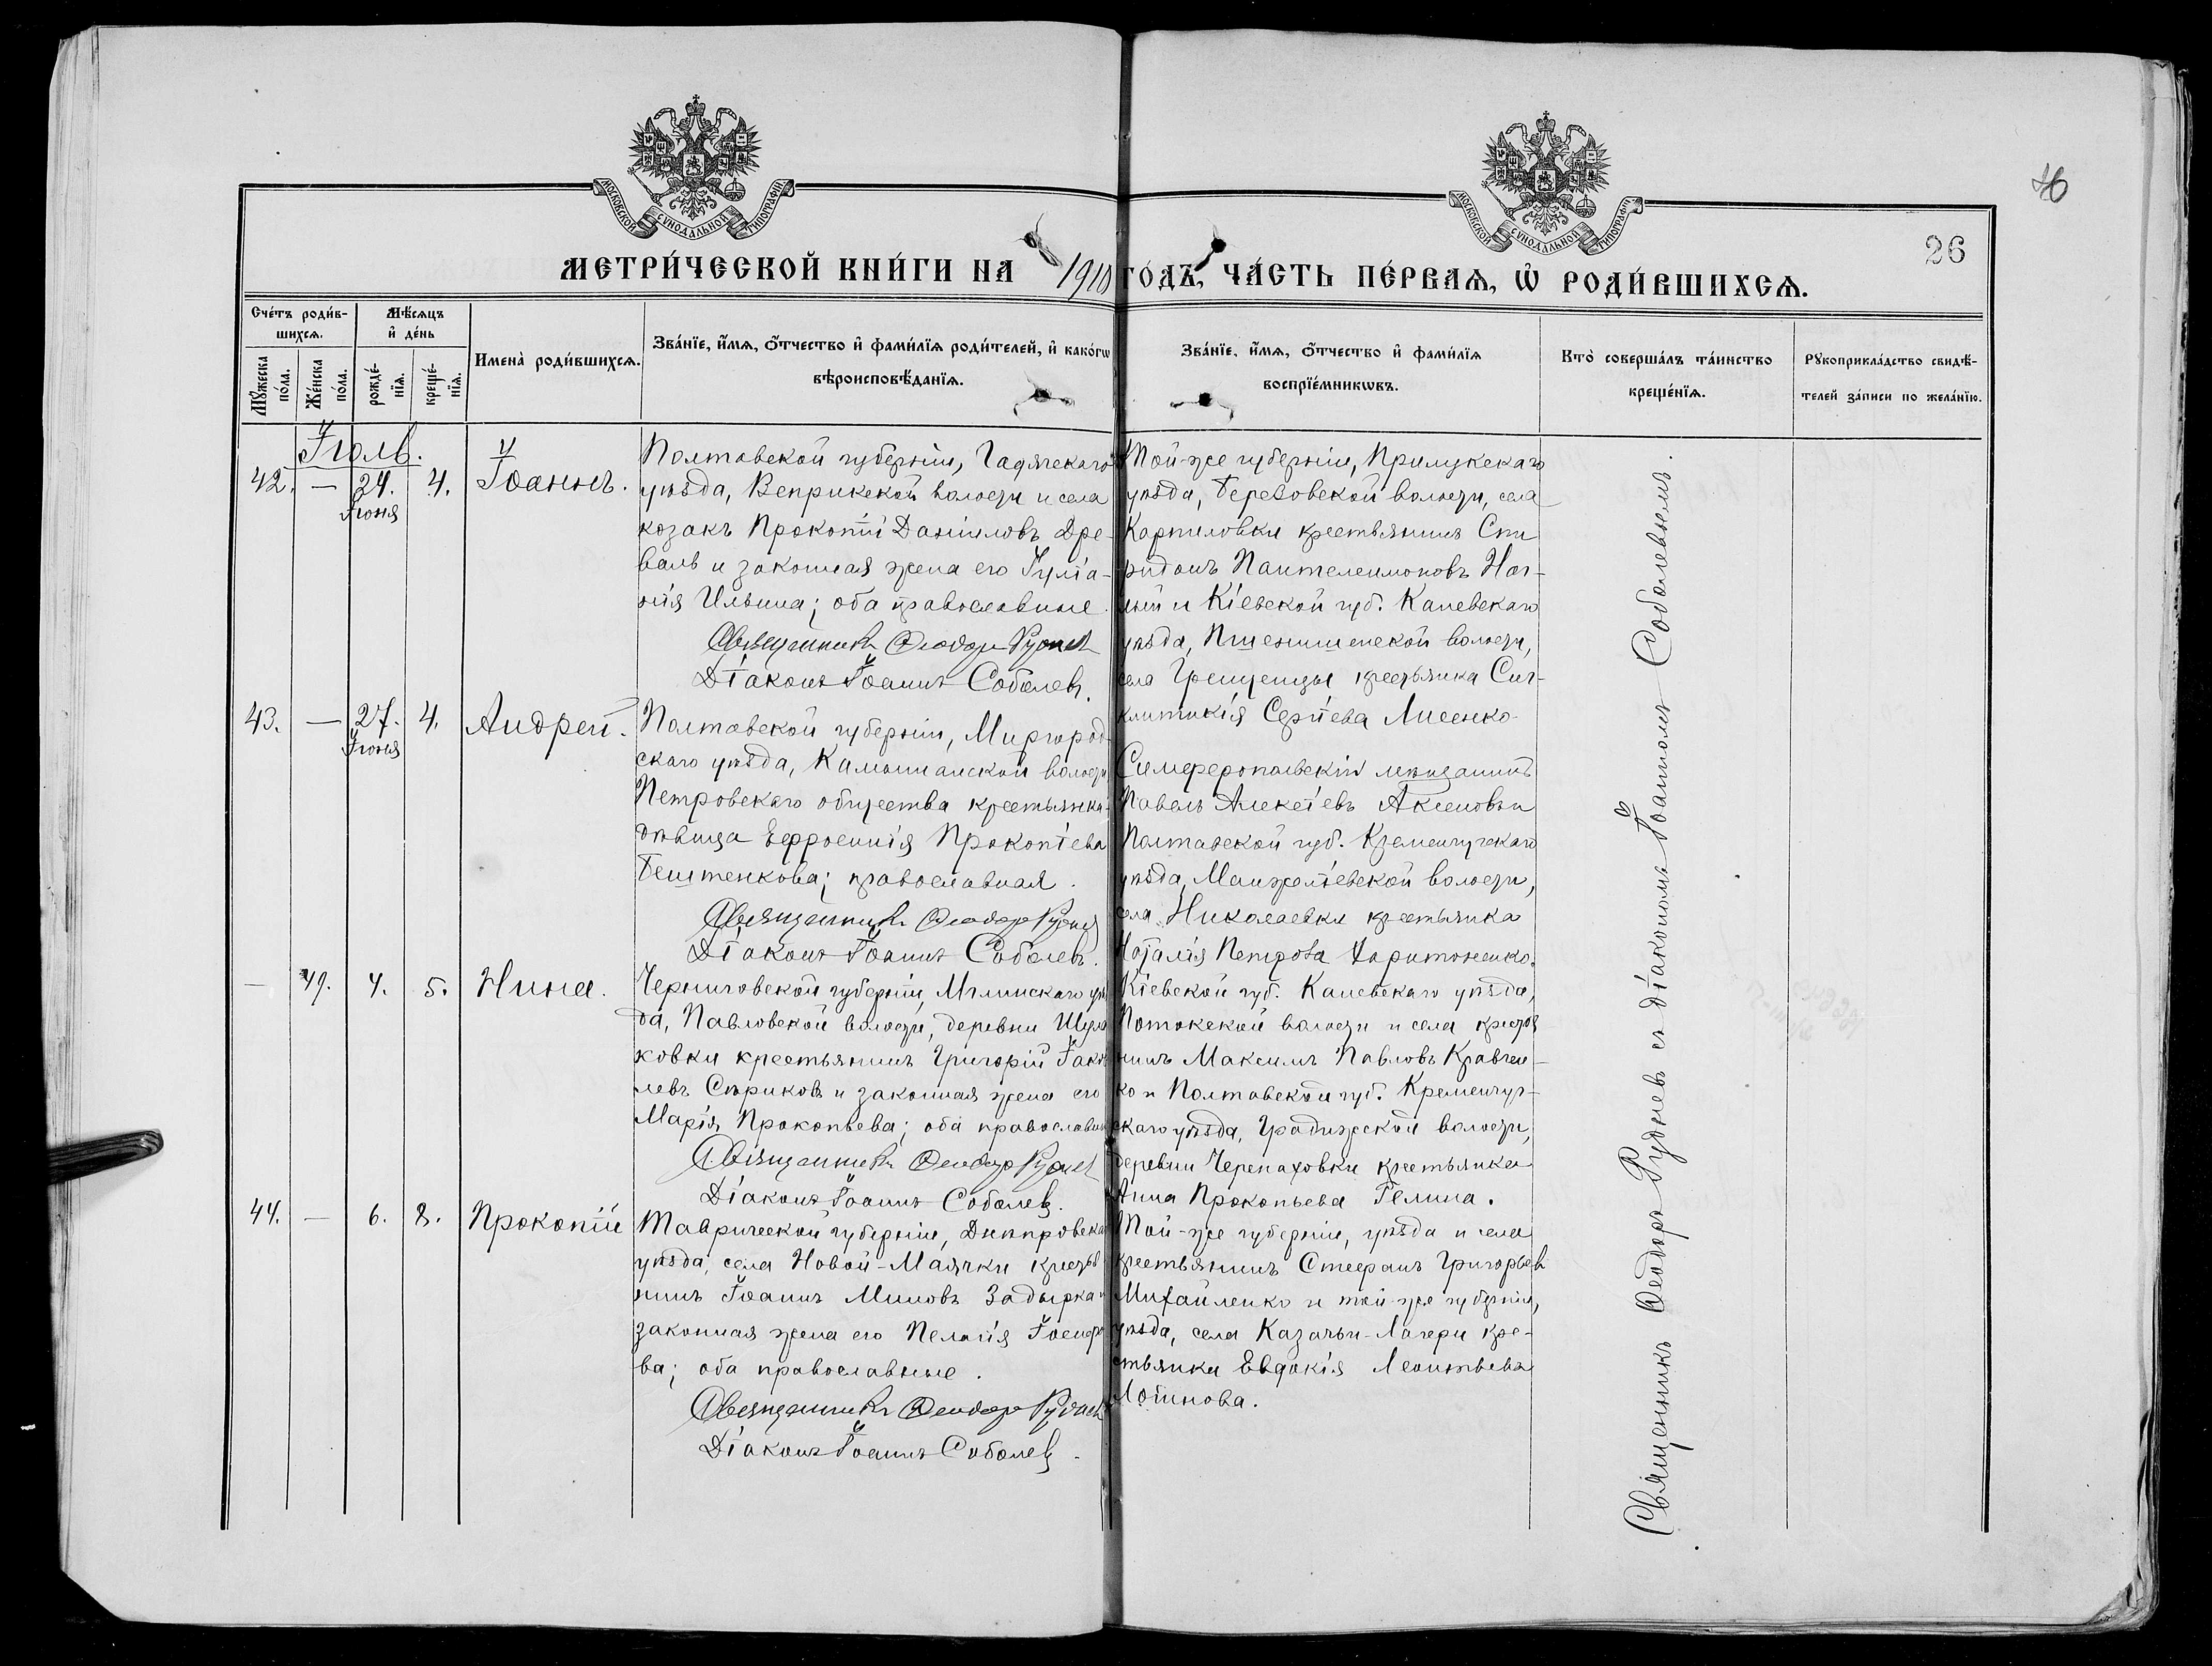 МОСКОВСКОЙ СУНОДАЛЬНОЙ ТИПОГРАФІИ
МОСКОВСКОЙ СУНОДАЛЬНОЙ ТИПОГРАФІИ
26
МЕТРИ́ЧЕСКОЙ КНИ́ГИ НА 1910 ГО́ДЪ, ЧА́СТЬ ПЕ́РВАѦ, Ѡ РОДИ́ВШИХСѦ.
Сче́тъ роди́в-
шихсѧ.
Мꙋ́жеска
по́ла.
Же́нска
по́ла.
Мѣ́сѧцъ
и де́нь
рожде́-
нїѧ.
креще́-
нїѧ.
Имена̀ роди́вшихсѧ.
Зва́нїе, и́мѧ, о́тчество и фами́лїѧ роди́телей, и како́гѡ
вѣроисповѣ́данїѧ.
Зва́нїе, и́мѧ, о́тчество и фами́лїѧ
воспрїе́мникѡвъ.
Кто̀ соверша́лъ та́инство
креще́нїѧ.
Рꙋкоприкла́дство свидѣ́-
телей за́писи по жела́нїю.
Іюль.
42. — 24. Іюня 4. Іоаннъ.
Полтавской губерніи, Гадячскаго
уѣзда, Веприкской волости и села
козакъ Прокопій Даніиловъ Дре-
валь и законная жена его Іуліа-
нія Ильина; оба православные.
Священникъ Ѳеодоръ Рудневъ
Діаконъ Іоаннъ Соболевъ.
Той-же губерніи, Прилукскаго
уѣзда, Березовской волости, села
Карпиловки крестьянинъ Спи
ридонъ Пантелеимоновъ Наг-
ный и Кіевской губ. Каневскаго
уѣзда, Пшеничненской волости,
села Грищенцы крестьянка Син-
клитикія Сергіева Лисенко
43. — 27. Іюня 4. Андрей.
Полтавской губерніи, Миргород-
скаго уѣзда, Камышанской волости
Петровскаго общества крестьянка-
дѣвица Евфросинія Прокопіева
Бештенкова; православная.
Священникъ Ѳеодоръ Рудневъ
Діаконъ Іоаннъ Соболевъ.
Симферопольскій мѣщанинъ
Павелъ Алексіевъ Аксеновъ и
Полтавской губ. Кременчугскаго
уѣзда, Манжеліевской волости,
села Николаевки крестьянка
Наталія Петрова Харитоненко.
— 49. 4. 5. Нина.
Черниговской губерніи, Мглинскаго уѣз
да, Павловской волости, деревни
ковки крестьянинъ Григорій Іаков
левъ Сѣриковъ и законная жена его
Марія Прокопьева; оба православные
Священникъ Ѳеодоръ Рудневъ
Діаконъ Іоаннъ Соболевъ.
Кіевской губ. Каневскаго уѣзда,
Потокской волости и села крестья
нинъ Максимъ Павловъ Кравчен-
ко и Полтавской губ. Кременчуг-
скаго уѣзда, Градижской волости,
деревни Черепаховки крестьянка
Анна Прокопьева Гелина.
44. — 6. 8. Прокопій
Таврической губерніи, Днѣпровскаго
уѣзда, села Новой-Маячки крестья
нинъ Іоаннъ Миновъ Задырка и
законная жена его Пелагія Іосифо
ва; оба православные.
Священникъ Ѳеодоръ Рудневъ
Діаконъ Іоаннъ Соболевъ.
Той-же губерніи, уѣзда и села
крестьянинъ Стефанъ Григорьевъ
Михайленко и той-же губерніи,
уѣзда, села Казачьи-Лагери кре-
стьянка Евдокія Леонтьева
Логинова.
Священникъ Ѳеодоръ Рудневъ съ діакономъ Іоанномъ Соболевымъ.